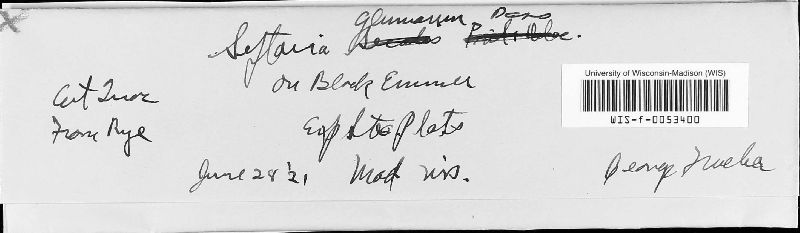 Septoria glumarum Pass
Secalis Pril + Dlac.
On Black Emmer
Art Inoc
From Rye
Exp Sta Plats
June 28 '21 Mad Wis.
University of Wisconsin-Madison (WIS)
WIS-f-0053400
George